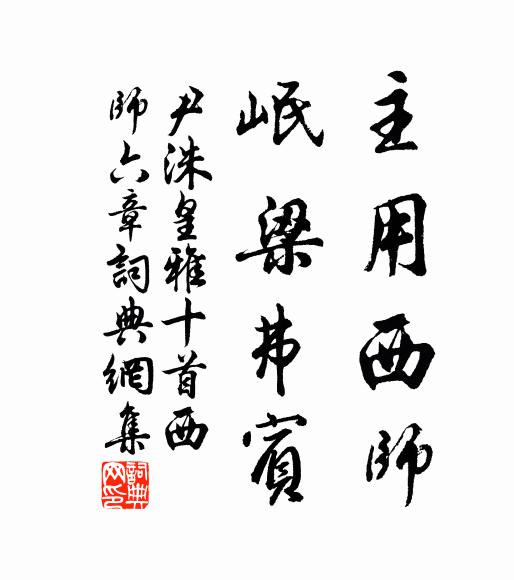 主用西師
岷梁弗賓
尹洙皇雅十首西
師六章詞典網集